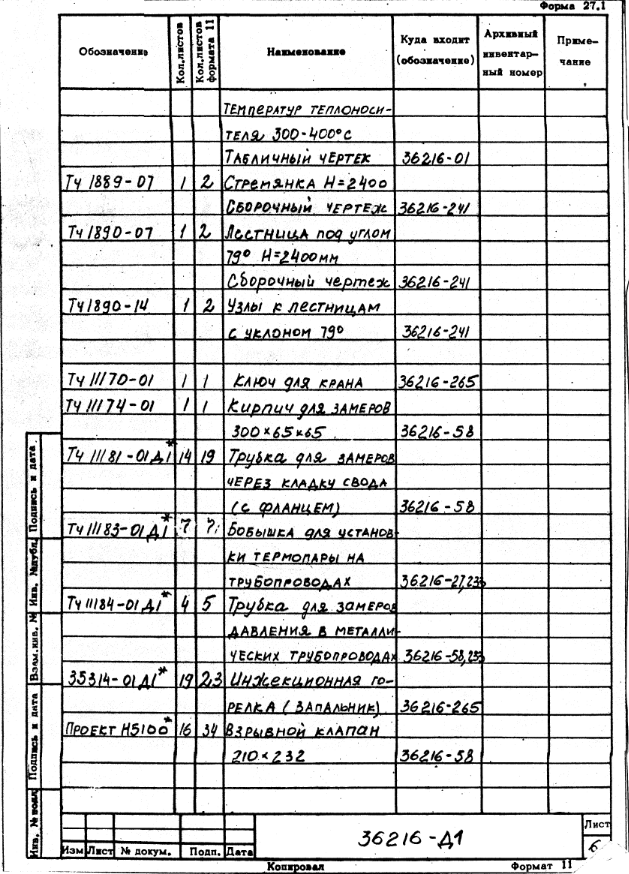 Форма 27.1
Обозначение Кол.листов Кол.листов формата 11 Наименование Куда входит (обозначение) Архивный инвентарный номер Примечание
температур теплоноси-
теля 300-400°С
Табличный чертеж 36216-01
Тч 1889-07 1 2 Стремянка Н=2400
Сборочный чертеж 36216-241
Тч 1890-07 1 2 Лестница под углом
79° Н=2400мм
Сборочный чертеж 36216-241
Тч 1890-14 1 2 Узлы к лестницам
с уклоном 79° 36216-241
Тч 11170-01 1 1 Ключ для крана 36216-265
Тч 11174-01 1 1 Кирпич для замеров
300×65×65 36216-58
Тч 11181-01Д1* 14 19 Трубка для замеров
через кладку свода
(с фланцем) 36216-58
Тч 11183-01Д1* 7 7 Бобышка для установ-
ки термопары на
трубопроводах 36216-27,233
Тч 11184-01Д1* 4 5 Трубка для замеров
давления в металли-
ческих трубопроводах 36216-58,233
35314-01Д1* 19 23 Инжекционная го-
релка (запальник) 36216-265
Проект Н5100* 16 34 Взрывной клапан
210×232 36216-58
Подпись и дата
Инв. №дубл.
Взам.инв. №
Подпись и дата
Инв. № подл.
36216-Д1
Лист
6
Изм Лист № докум. Подп. Дата
Копировал Формат 11